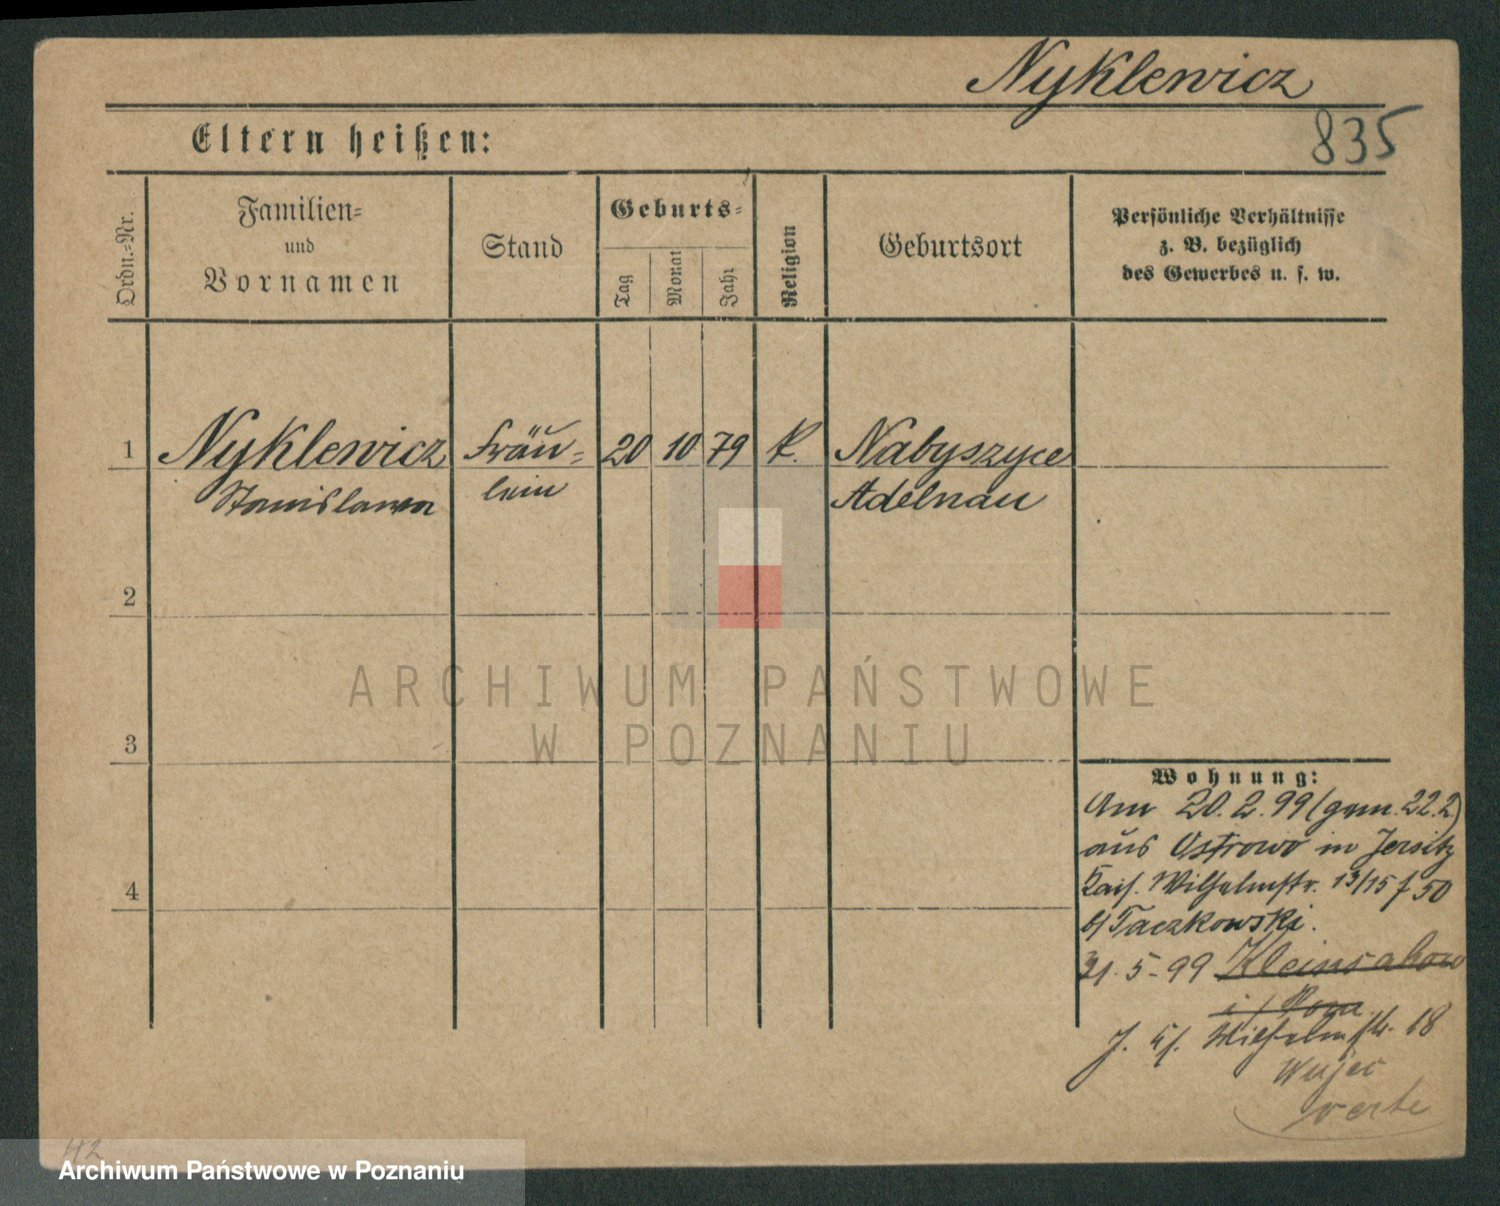 Nyklewicz
835
Eltern heißen:
Ordn.-Nr.
Familien-
und
Vornamen
Stand
Geburts-
Tag
Monat
Jahr
Religion
Geburtsort
Persönliche Verhältnisse
z. B. bezüglich
des Gewerbes u. s. w.
1 Nyklewicz Fräu- 20 10 79 k. Nabyszyce
Stanislawa lein Adelnau
2
3
4
Wohnung:
Am 20. 2. 99 (gem. 22.2)
aus Ostrowo in Jersitz
Kais. Wilhelmstr. 13/15 f 50
b/ Taczkowski.
31. 5. 99
J. Wilhelmstr. 18
verte
H2
ARCHIWUM PAŃSTWOWE
W POZNANIU
Archiwum Państwowe w Poznaniu